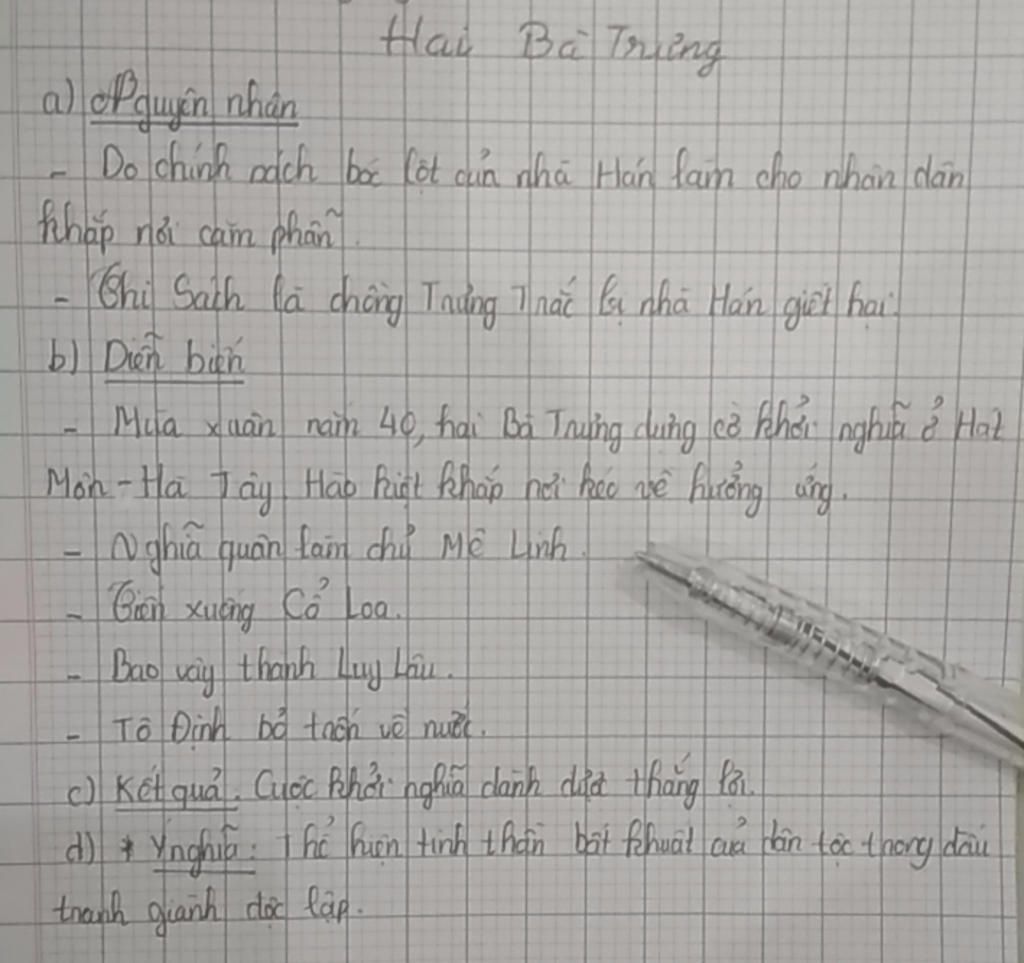 Hai Bà Trưng
a) Nguyên nhân
- Do chính sách bóc lột của nhà Hán làm cho nhân dân
khắp nơi căm phẫn.
- Thi Sách là chồng Trưng Trắc bị nhà Hán giết hại.
b) Diễn biến
- Mùa xuân năm 40, hai Bà Trưng dựng cờ khởi nghĩa ở Hát
Môn - Hà Tây. Hào kiệt khắp nơi kéo về hưởng ứng.
- Nghĩa quân làm chủ Mê Linh.
- Tiến xuống Cổ Loa.
- Bao vây thành Luy Lâu.
- Tô Định bỏ trốn về nước.
c) Kết quả: Cuộc khởi nghĩa dành được thắng lợi.
d) * Ý nghĩa: Thể hiện tinh thần bất khuất của dân tộc trong đấu
tranh giành độc lập.